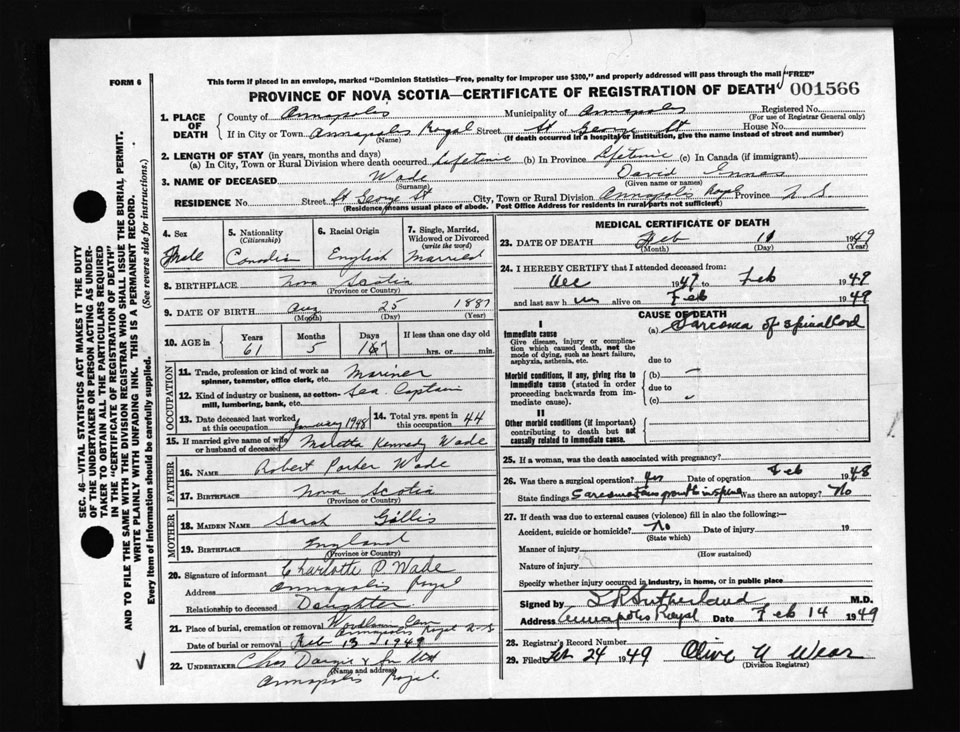 FORM 6
This form if placed in an envelope, marked "Dominion Statistics—Free, penalty for improper use $300," and properly addressed will pass through the mail "FREE"
PROVINCE OF NOVA SCOTIA—CERTIFICATE OF REGISTRATION OF DEATH 001566
1. PLACE OF DEATH
County of Annapolis Municipality of Annapolis Registered No.
(For use of Registrar General only)
If in City or Town Annapolis Royal Street St George St House No.
(Name) (If death occurred in a hospital or institution, give the name instead of street and number)
2. LENGTH OF STAY (in years, months and days)
(a) In City, Town or Rural Division where death occurred Lifetime (b) In Province Lifetime (c) In Canada (if immigrant)
3. NAME OF DECEASED Wade David
(Surname) (Given name or names)
RESIDENCE No. Street St George St City, Town or Rural Division Annapolis Royal Province N.S.
(Residence means usual place of abode. Post Office Address for residents in rural parts not sufficient)
4. Sex Male
5. Nationality (Citizenship) Canadian
6. Racial Origin English
7. Single, Married, Widowed or Divorced (write the word) Married
8. BIRTHPLACE Nova Scotia
(Province or Country)
9. DATE OF BIRTH Aug 25 1887
(Month) (Day) (Year)
10. AGE in Years Months Days If less than one day old
61 5 hrs. or min.
OCCUPATION
11. Trade, profession or kind of work as spinner, teamster, office clerk, etc. Mariner
12. Kind of industry or business, as cotton-mill, lumbering, bank, etc. Sea Captain
13. Date deceased last worked at this occupation January 1948
14. Total yrs. spent in this occupation 44
15. If married give name of wife or husband of deceased Kennedy Wade
FATHER
16. Name Robert Parker Wade
17. Birthplace Nova Scotia
(Province or Country)
MOTHER
18. MAIDEN NAME Sarah Gillis
19. BIRTHPLACE England
(Province or Country)
20. Signature of informant Charlotte P Wade
Address Annapolis Royal
Relationship to deceased Daughter
21. Place of burial, cremation or removal Woodlawn Cem
Annapolis Royal N.S
Date of burial or removal Feb 13 1949
22. UNDERTAKER Chas Dargie & Son Ltd
(Name and address)
Annapolis Royal.
MEDICAL CERTIFICATE OF DEATH
23. DATE OF DEATH Feb 11 1949
(Month) (Day) (Year)
24. I HEREBY CERTIFY that I attended deceased from:
Dec 1947 to Feb 1949
and last saw him alive on Feb 1949
CAUSE OF DEATH
I
Immediate cause
Give disease, injury or complication which caused death, not the mode of dying, such as heart failure, asphyxia, asthenia, etc.
(a) Sarcoma of Spinal Cord
due to
Morbid conditions, if any, giving rise to immediate cause (stated in order proceeding backwards from immediate cause).
(b)
due to
(c)
II
Other morbid conditions (if important) contributing to death but not causally related to immediate cause.
25. If a woman, was the death associated with pregnancy?
26. Was there a surgical operation? Yes Date of operation Feb 1948
State findings Sarcomatous growth in spine Was there an autopsy? No
27. If death was due to external causes (violence) fill in also the following:—
Accident, suicide or homicide? No Date of injury 19
(State which)
Manner of injury
(How sustained)
Nature of injury
Specify whether injury occurred in industry, in home, or in public place
Signed by L R Sutherland M.D.
Address Annapolis Royal Date Feb 14 1949
28. Registrar's Record Number
29. Filed Feb 24 1949 Olive U Wear
(Division Registrar)
SEC. 46—VITAL STATISTICS ACT MAKES IT THE DUTY
OF THE UNDERTAKER OR PERSON ACTING AS UNDER-
TAKER TO OBTAIN ALL THE PARTICULARS REQUIRED
IN THE "CERTIFICATE OF REGISTRATION OF DEATH"
AND TO FILE THE SAME WITH THE DIVISION REGISTRAR WHO SHALL ISSUE THE BURIAL PERMIT.
WRITE PLAINLY WITH UNFADING INK. THIS IS A PERMANENT RECORD.
Every item of Information should be carefully supplied. (See reverse side for instructions.)